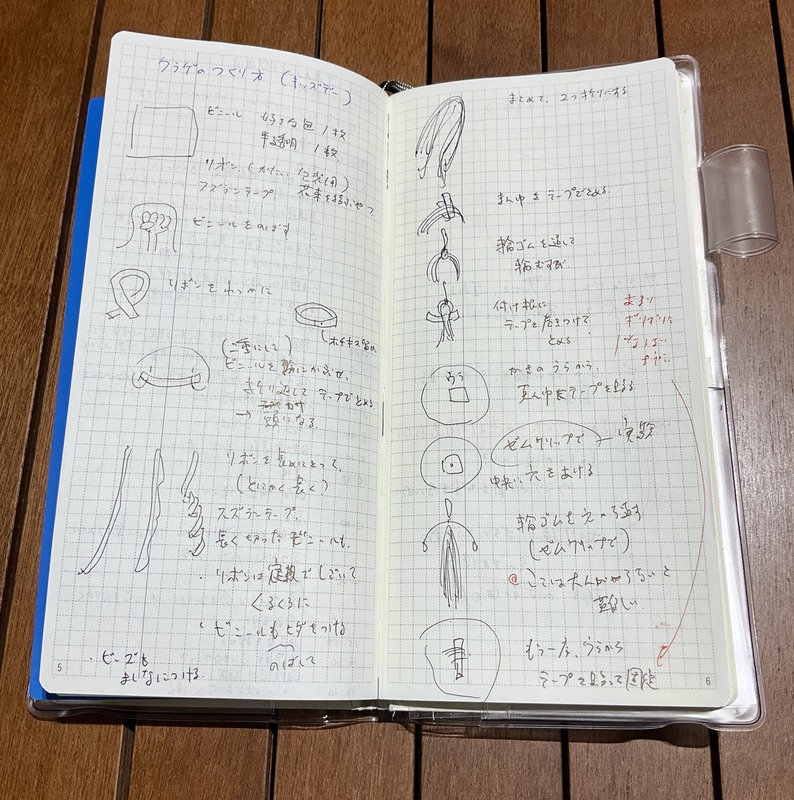 クラゲのつくり方 (キッズデー)
ビニール もらさる包 1枚
半透明 1枚
リボン (かたい 包装用)
スズランテープ 花束を結ぶやつ
ビニールをのばす
リボンをわっかに
ホチキス留め
(二重にして)
ビニールを輪にかぶせ、
折り返して テープでとめる
→ 頭になる
リボンを長めにとって、
(とにかく長く)
スズランテープ、
長く切った ビニールも、
・リボンは定規でしごいて
くるくるに
・ビニールもヒダをつける
のばして
・ビーズも
まばらにつける
5
まとめて、2つ折りにする
まん中をテープでとめる
輪ゴムを通して
輪むすび
付け根に
テープを巻きつけて
とめる
あまり
ギリギリに
ならない
ように
うら
かさのうらから、
真ん中にテープを貼る
ゼムクリップで
実験
中央に穴をあける
輪ゴムを穴へ通す
(ゼムクリップで)
@ ここは大人がやらないと
難しい
もう一度、うらから
テープを貼って固定
6